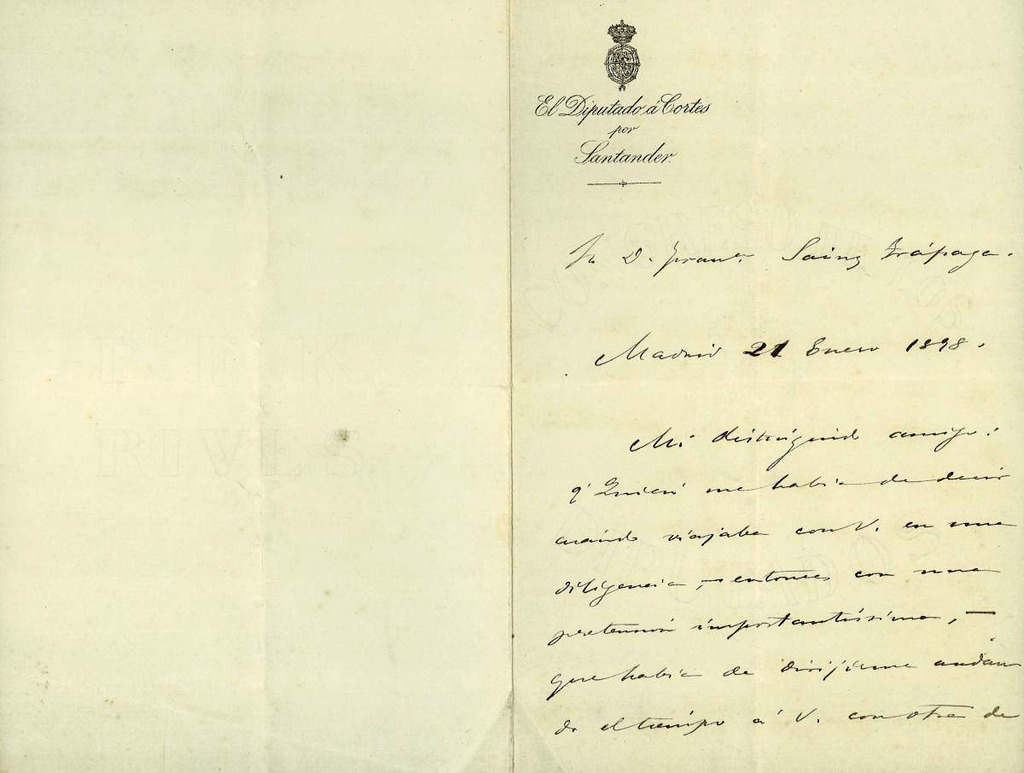 El Diputado á Cortes
por
Santander.
Sr. D. Franco. Sainz Trápaga.
Madrid 21 Enero 1898.
Mi distinguido amigo:
¿Quien me habia de decir
cuando viajaba con V. en una
diligencia, y entonces con una
pretension importantísima, —
que habia de dirijirme andan
do el tiempo á V. con otra de